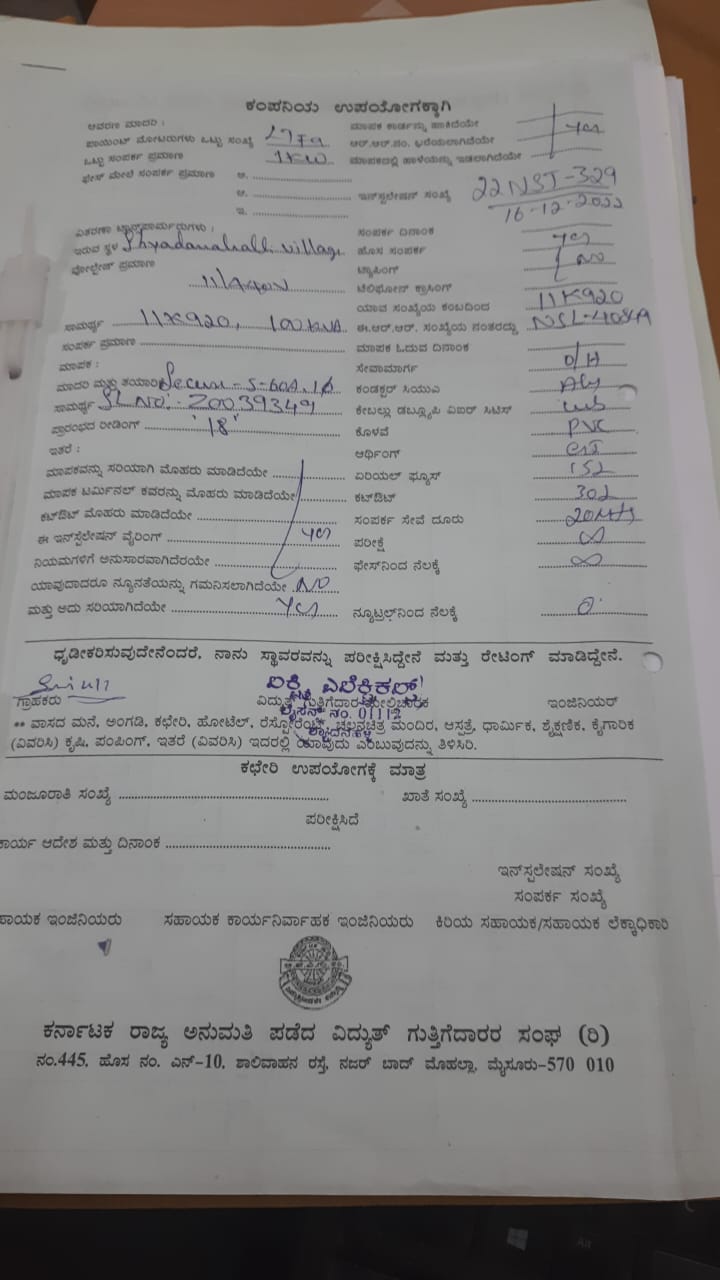 ಕಂಪನಿಯ ಉಪಯೋಗಕ್ಕಾಗಿ
ಆವರಣ ಮಾದರಿ : ಮಾಪಕ ಕಾರ್ಡನ್ನು ಹಾಕಿದೆಯೇ
ಪಾಯಿಂಟ್ ಮೋಟರುಗಳು ಒಟ್ಟು ಸಂಖ್ಯೆ ಆರ್.ಆರ್.ನಂ. ಬರೆಯಲಾಗಿದೆಯೇ yes
ಒಟ್ಟು ಸಂಪರ್ಕ ಪ್ರಮಾಣ 1KW ಮಾಪಕದಲ್ಲಿ ಹಾಳೆಯನ್ನು ಇಡಲಾಗಿದೆಯೇ
ಫೇಸ್ ಮೇಲೆ ಸಂಪರ್ಕ ಪ್ರಮಾಣ ಅ.
ಆ. ಇನ್‌ಸ್ಟಲೇಷನ್ ಸಂಖ್ಯೆ 22NST-329
ಇ. 16-12-2022
ವಿತರಣಾ ಟ್ರಾನ್ಸ್‌ಫಾರ್ಮರುಗಳು : ಸಂಪರ್ಕ ದಿನಾಂಕ
ಇರುವ ಸ್ಥಳ Shyadanahalli village ಹೊಸ ಸಂಪರ್ಕ yes
ವೋಲ್ಟೇಜ್ ಪ್ರಮಾಣ ಟ್ಯಾಪಿಂಗ್ NO
ಟೆಲಿಫೋನ್ ಕ್ರಾಸಿಂಗ್
ಯಾವ ಸಂಖ್ಯೆಯ ಕಂಬದಿಂದ 11K920
ಸಾಮರ್ಥ್ಯ 11K920, 100KVA ಈ.ಆರ್.ಆರ್. ಸಂಖ್ಯೆಯ ನಂತರದ್ದು
ಸಂಪರ್ಕ ಪ್ರಮಾಣ ಮಾಪಕ ಓದುವ ದಿನಾಂಕ
ಮಾಪಕ : ಸೇವಾಮಾರ್ಗ O/H
ಮಾದರಿ ಮತ್ತು ತಯಾರಿ ಕಂಡಕ್ಟರ್ ಸಿಯುಎ
ಸಾಮರ್ಥ್ಯ SL NO: 20039349 ಕೇಬಲ್ಲು ಡಬ್ಲ್ಯೂಪಿ ಏಐರ್ ಸಿಟಿಸ್
ಪ್ರಾರಂಭದ ರೀಡಿಂಗ್ '18' ಕೊಳವೆ PVC
ಇತರೆ : ಆರ್ಥಿಂಗ್
ಮಾಪಕವನ್ನು ಸರಿಯಾಗಿ ಮೊಹರು ಮಾಡಿದೆಯೇ ಏರಿಯಲ್ ಫ್ಯೂಸ್
ಮಾಪಕ ಟರ್ಮಿನಲ್ ಕವರನ್ನು ಮೊಹರು ಮಾಡಿದೆಯೇ ಕಟ್‌ಔಟ್
ಕಟ್‌ಔಟ್ ಮೊಹರು ಮಾಡಿದೆಯೇ ಸಂಪರ್ಕ ಸೇವೆ ದೂರು
ಈ ಇನ್‌ಸ್ಪೆಲೇಷನ್ ವೈರಿಂಗ್ yes ಪರೀಕ್ಷೆ ∞
ನಿಯಮಗಳಿಗೆ ಅನುಸಾರವಾಗಿದೆರಯೇ ಫೇಸ್‌ನಿಂದ ನೆಲಕ್ಕೆ ∞
ಯಾವುದಾದರೂ ನ್ಯೂನತೆಯನ್ನು ಗಮನಿಸಲಾಗಿದೆಯೇ NO
ಮತ್ತು ಅದು ಸರಿಯಾಗಿದೆಯೇ Yes ನ್ಯೂಟ್ರಲ್‌ನಿಂದ ನೆಲಕ್ಕೆ 0
ಧೃಡೀಕರಿಸುವುದೇನೆಂದರೆ, ನಾನು ಸ್ಥಾವರವನ್ನು ಪರೀಕ್ಷಿಸಿದ್ದೇನೆ ಮತ್ತು ರೇಟಿಂಗ್ ಮಾಡಿದ್ದೇನೆ.
ಎಲೆಕ್ಟ್ರಿಕಲ್ಸ್
ಗ್ರಾಹಕರು ವಿದ್ಯುತ್ ಗುತ್ತಿಗೆದಾರ ಮೇಲ್ವಿಚಾರಕ ಇಂಜಿನಿಯರ್
ಲೈಸೆನ್ಸ್ ನಂ. 01112
** ವಾಸದ ಮನೆ, ಅಂಗಡಿ, ಕಛೇರಿ, ಹೋಟೆಲ್, ರೆಸ್ಟೋರೆಂಟ್, ಚಲನಚಿತ್ರ ಮಂದಿರ, ಆಸ್ಪತ್ರೆ, ಧಾರ್ಮಿಕ, ಶೈಕ್ಷಣಿಕ, ಕೈಗಾರಿಕ
(ವಿವರಿಸಿ) ಕೃಷಿ, ಪಂಪಿಂಗ್, ಇತರೆ (ವಿವರಿಸಿ) ಇದರಲ್ಲಿ ಯಾವುದು ಎಂಬುವುದನ್ನು ತಿಳಿಸಿರಿ.
ಕಛೇರಿ ಉಪಯೋಗಕ್ಕೆ ಮಾತ್ರ
ಮಂಜೂರಾತಿ ಸಂಖ್ಯೆ ಖಾತೆ ಸಂಖ್ಯೆ
ಪರೀಕ್ಷಿಸಿದೆ
ಕಾರ್ಯ ಆದೇಶ ಮತ್ತು ದಿನಾಂಕ
ಇನ್‌ಸ್ಪಲೇಷನ್ ಸಂಖ್ಯೆ
ಸಂಪರ್ಕ ಸಂಖ್ಯೆ
ಹಾಯಕ ಇಂಜಿನಿಯರು ಸಹಾಯಕ ಕಾರ್ಯನಿರ್ವಾಹಕ ಇಂಜಿನಿಯರು ಕಿರಿಯ ಸಹಾಯಕ/ಸಹಾಯಕ ಲೆಕ್ಕಾಧಿಕಾರಿ
ಕರ್ನಾಟಕ ರಾಜ್ಯ ಅನುಮತಿ ಪಡೆದ ವಿದ್ಯುತ್ ಗುತ್ತಿಗೆದಾರರ ಸಂಘ (ರಿ)
ನಂ.445, ಹೊಸ ನಂ. ಎನ್-10, ಶಾಲಿವಾಹನ ರಸ್ತೆ, ನಜರ್ ಬಾದ್ ಮೊಹಲ್ಲಾ, ಮೈಸೂರು-570 010